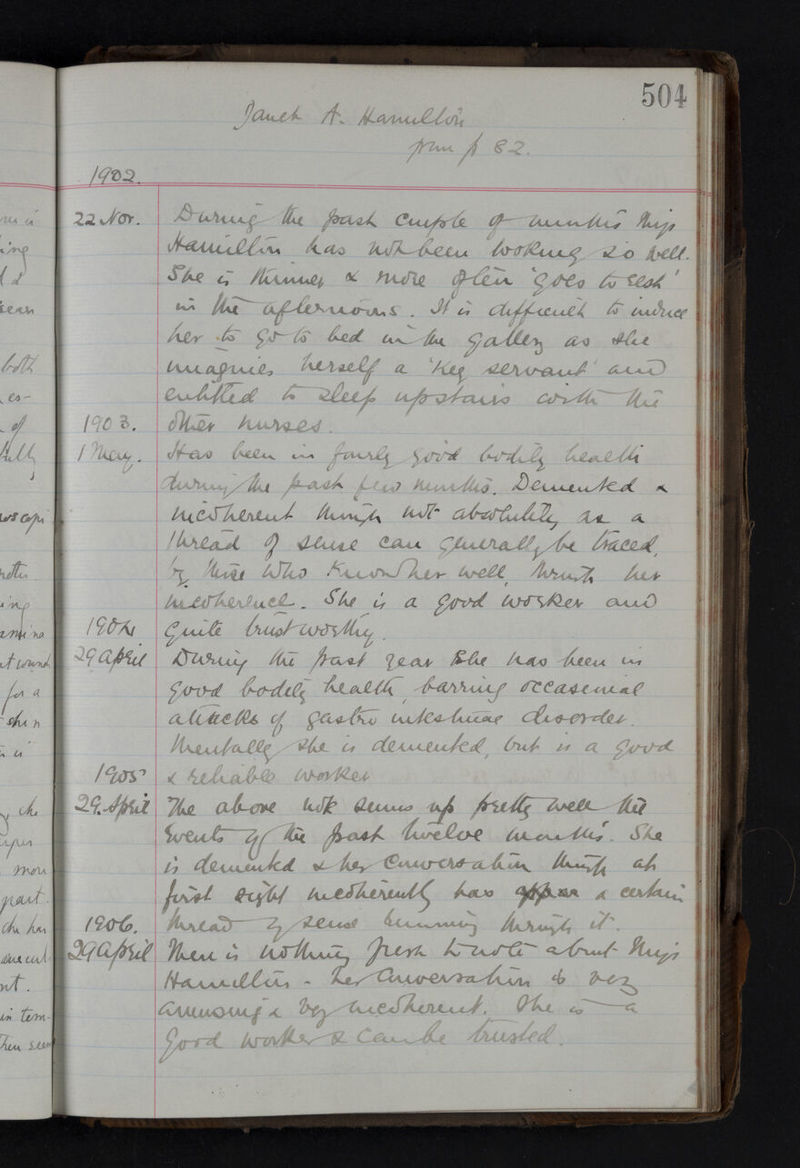 504
Janet A. Hamilton
from p 82.
1902.
22 Nov. During the past couple of months Miss
Hamilton has not been looking so well.
She is thinner & more often 'goes to rest'
in the afternoons. It is difficult to induce
her to go to bed in the gallery as she
imagines herself a 'Key servant' and
entitled to sleep upstairs with the
1903. other nurses.
1 May. Has been in fairly good bodily health
during the past few months. Demented &
incoherent though not absolutely as a
thread of sense can generally be traced,
by those who know her well, through her
incoherence. She is a good worker and
1904 quite trustworthy.
29 April During the past year she has been in
good bodily health, barring occasional
attacks of gastro intestinal disorder.
Mentally she is demented, but is a good
1905 & reliable worker
29. April The above note sums up pretty well the
events of the past twelve months. She
is demented & her conversation though at
first sight incoherently has a certain
1906. thread of sense running through it.
29 April There is nothing fresh to note about Miss
Hamilton - her conversation is very
amusing & very incoherent. She is a
good worker & can be trusted.